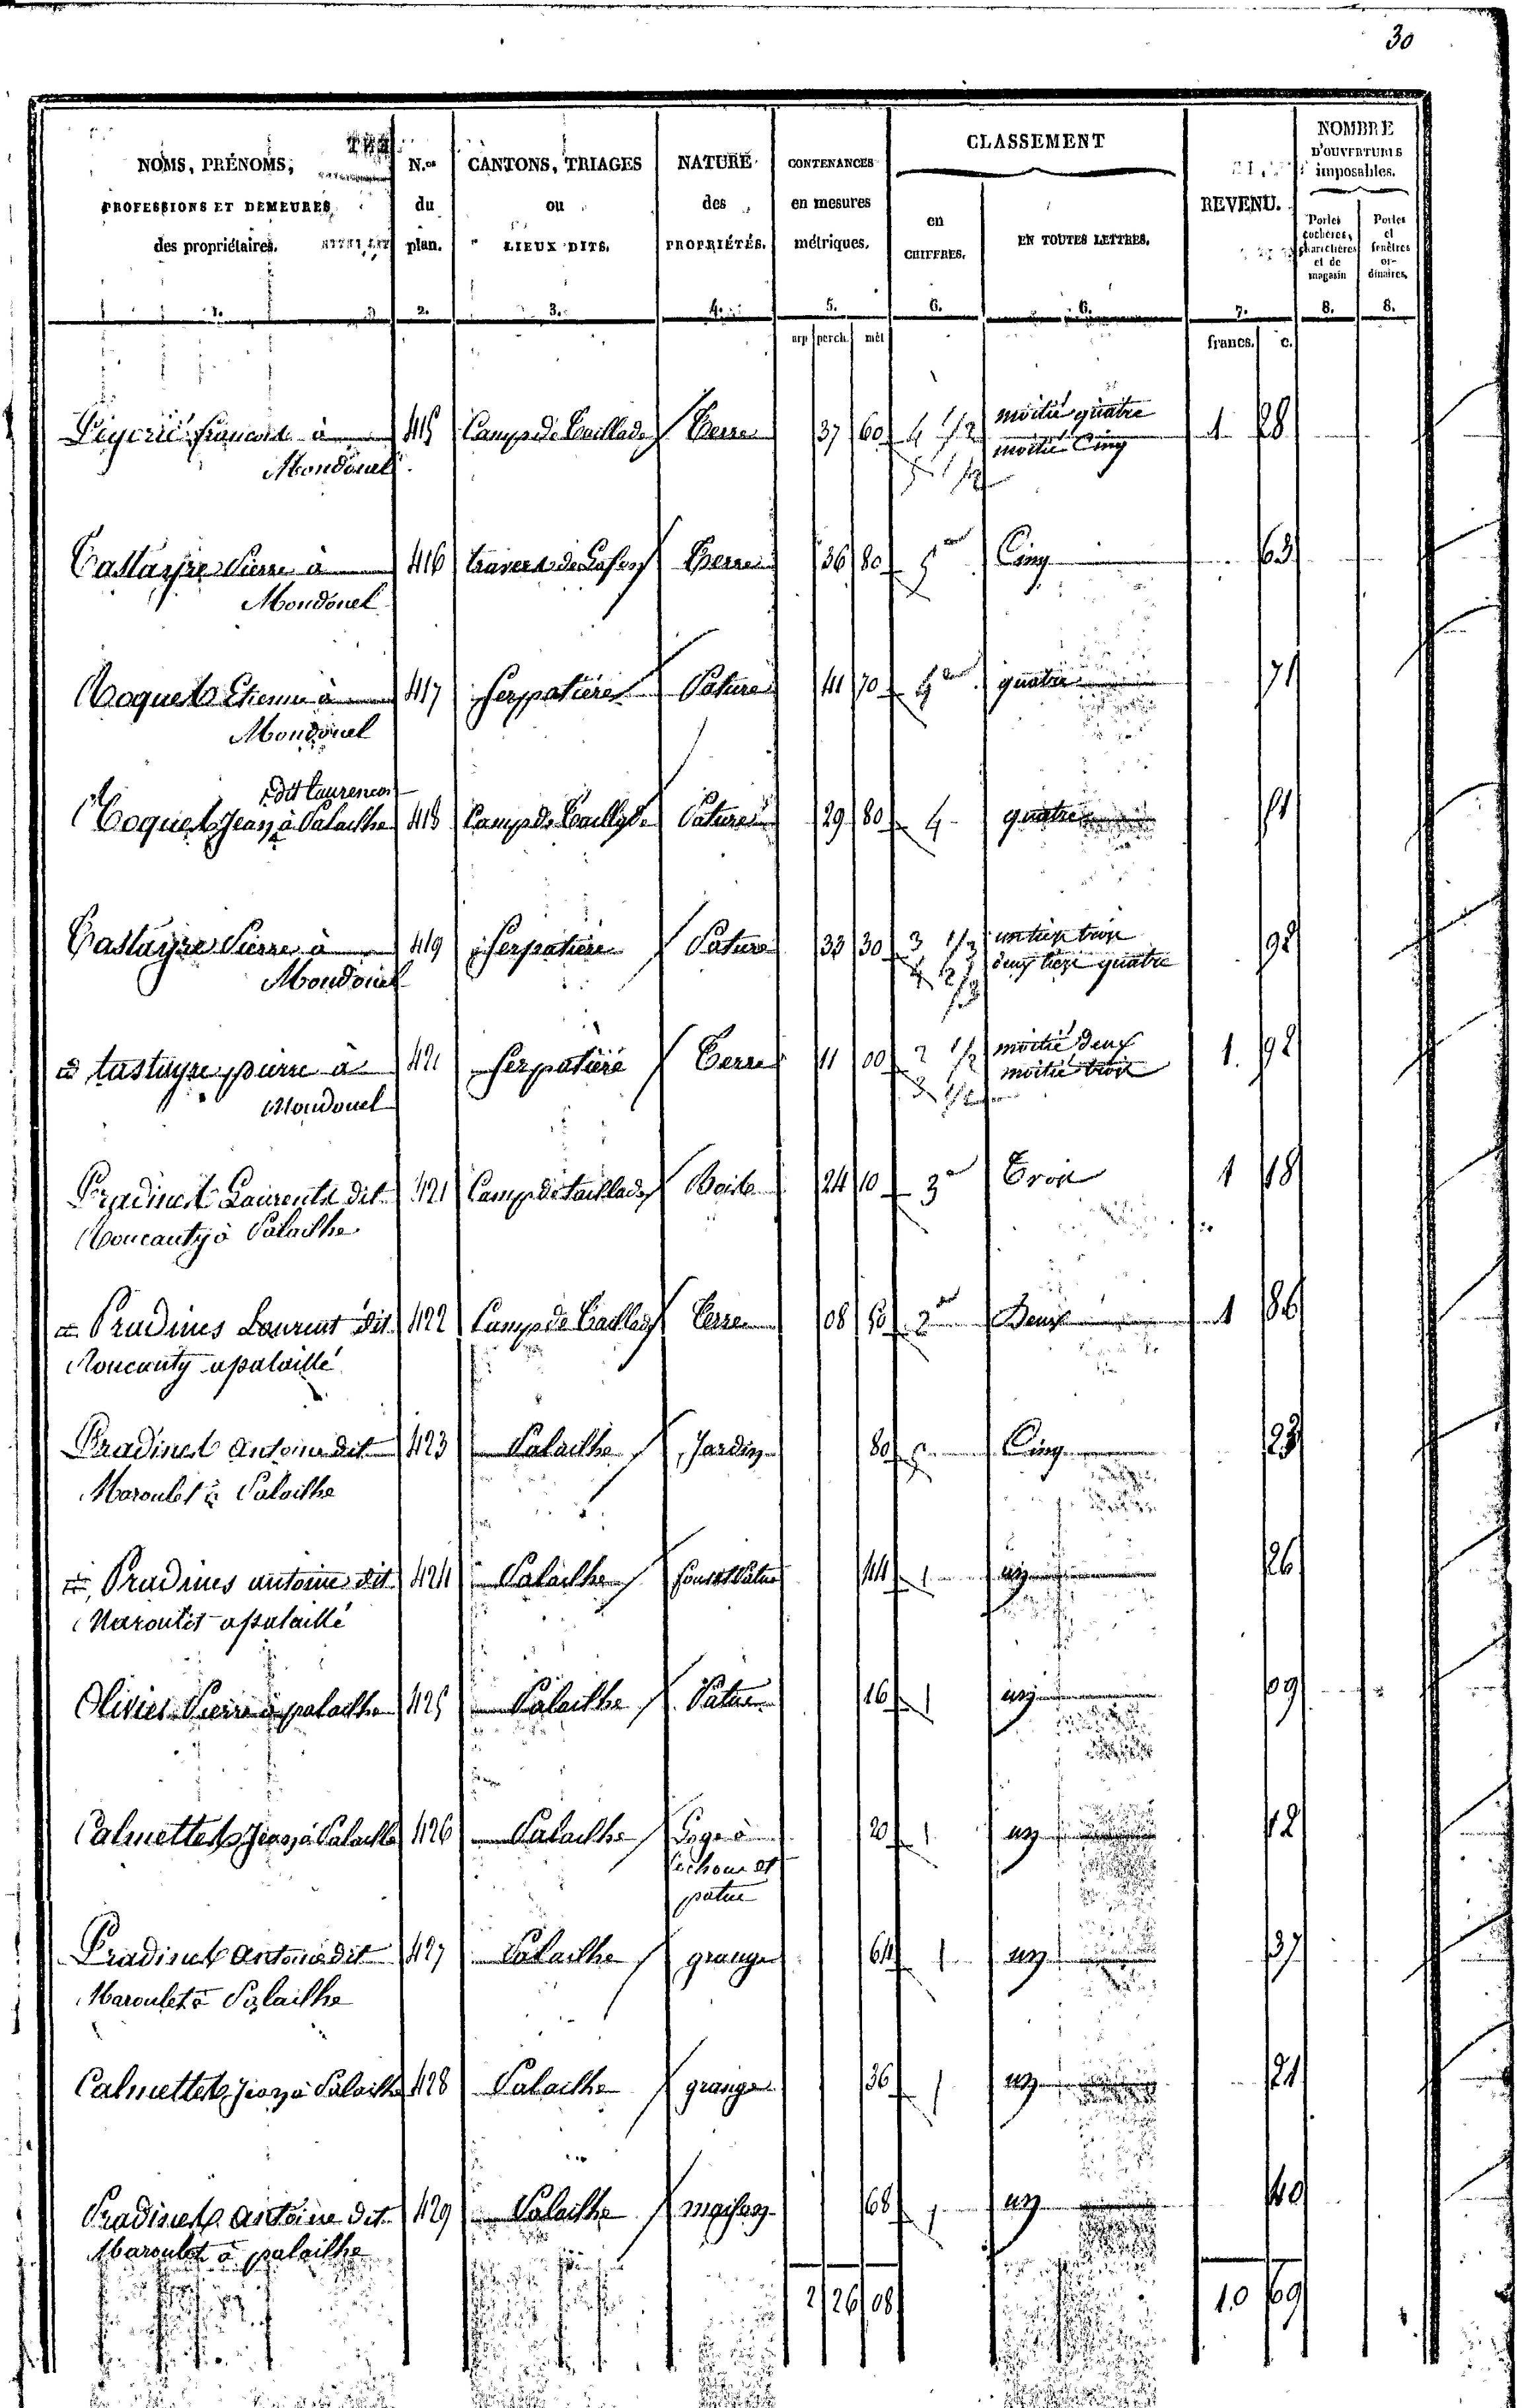 30
NOMS, PRÉNOMS,
PROFESSIONS ET DEMEURES
des propriétaires.
N.os
du
plan.
CANTONS, TRIAGES
ou
LIEUX DITS.
NATURE
des
PROPRIÉTÉS.
CONTENANCES
en mesures
métriques.
CLASSEMENT
en
CHIFFRES.
EN TOUTES LETTRES.
REVENU.
NOMBRE
D'OUVERTURES
imposables.
Portes
cochères,
charretières
et de
magasin
Portes
et
fenêtres
or-
dinaires.
1. 2. 3. 4. 5. 6. 6. 7. 8. 8.
arp perch. mèt francs. c.
à 415 Camp de Taillade Terre 37 60 4 1/2 moitié quatre 1 28
Mondouel 5 1/2 moitié Cinq
Tastayre Pierre à 416 travers de Terre 36 80 5 Cinq 63
Mondouel
Roquet Etienne à 417 Serpatière Pature 41 70 4 quatre 71
Mondouel
dit Laurencou
Roquet Jean à Palailhe 418 Camp de Taillade Pature 29 80 4 quatre 51
Tastayre Pierre à 419 Serpatière Pature 33 30 3 1/3 un tiers trois 92
Mondouel 4 2/3 deux tiers quatre
tastayre pierre à 421 Serpatière Terre 11 00 2 1/2 moitié deux 1 92
Mondouel 3 1/2 moitié trois
Pradines Laurent dit 421 Camp de taillade Bois 24 10 3 Trois 1 18
Roucanty à Palailhe
Pradines Laurent dit 422 Camp de Taillade Terre 08 50 2 Deux 1 86
Roucanty a palaillé
Pradines Antoine dit 423 Palailhe Jardin 80 5 Cinq 23
Maroulet à Palailhe
Pradines antoine dit 424 Palailhe 44 1 un 26
Maroulet a palaillé
Olivier Pierre à palailhe 425 Palailhe Patus 16 1 un 09
Calmettes Jean à Palailhe 426 Palailhe Loge à 20 1 un 12
cochon et
patus
Pradines Antoine dit 427 Palailhe grange 64 1 un 37
Maroulet à Palailhe
Calmettes Jean à Palailhe 428 Palailhe grange 36 1 un 21
Pradines Antoine dit 429 Palailhe maison 68 1 un 40
Maroulet à palailhe
2 26 08 10 69